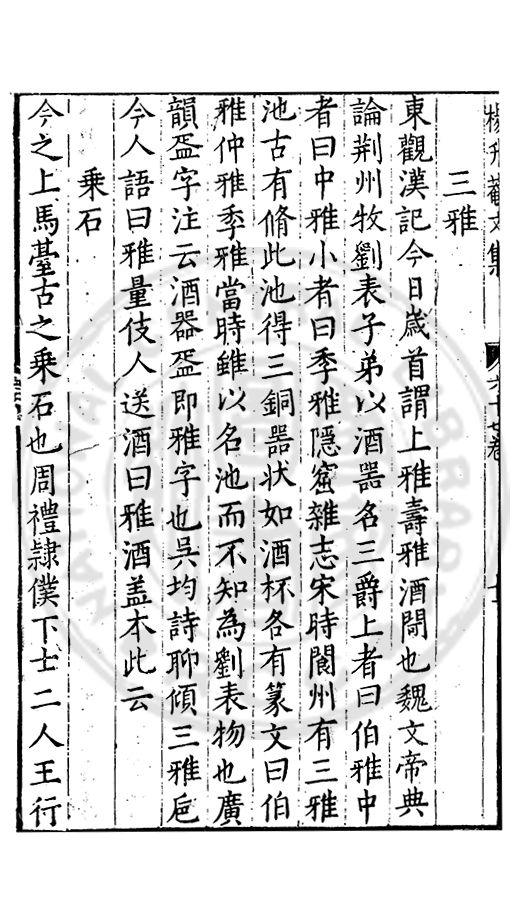 三雅
東觀漢記今日歲首謂上雅壽雅酒閜也魏文帝典
論荆州牧劉表子弟以酒器名三爵上者曰伯雅中
者曰中雅小者曰季雅隱窟雜志宋時閬州有三雅
池古有脩此池得三銅器状如酒杯各有篆文曰伯
雅仲雅季雅當時雖以名池而不知為劉表物也廣
韻盃字注云酒器盃即雅字也吳均詩聊傾三雅巵
今人語曰雅量伎人送酒曰雅酒盖本此云
乗石
今之上馬臺古之乗石也周禮隷僕下士二人王行